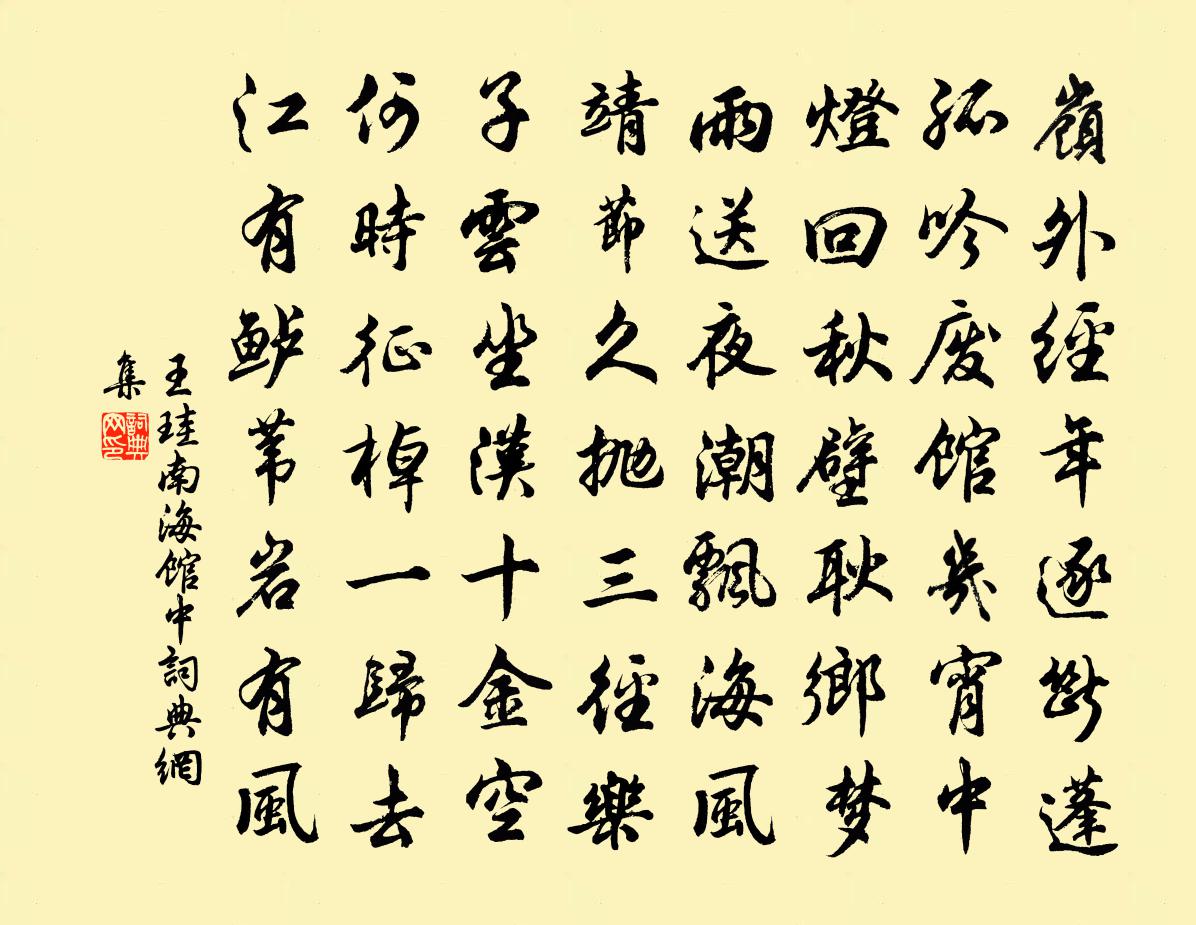 嶺外經年逐斷蓬
孤吟廢館幾宵中
燈回秋壁耿鄉梦
雨送夜潮飄海風
靖節久拋三徑樂
子雲坐漢十金空
何時征棹一歸去
江有鲈苇岩有風
王珪南海館中詞典網
集
詞典网印